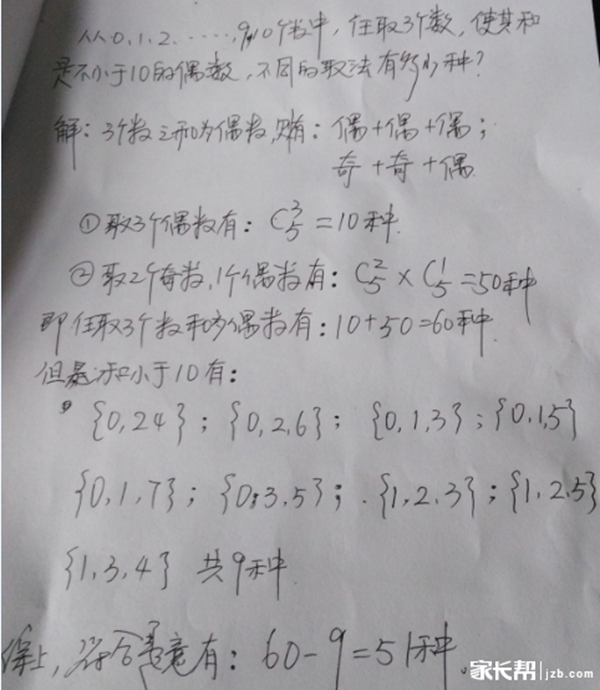 从0.1.2.……,9,10个数中,任取3个数,使其和
是不小于10的偶数,不同的取法有多少种?
解:3个数之和为偶数,则有:偶+偶+偶;
奇+奇+偶.
①取3个偶数有:C₅³=10种.
②取2个奇数,1个偶数有:C₅²×C₅¹=50种
即任取3个数和为偶数有:10+50=60种.
但是和小于10有:
{0,2,4};{0,2,6};{0,1,3};{0,1,5}
{0,1,7};{0,3,5};{1,2,3};{1,2,5}
{1,3,4} 共9种
综上,符合题意有:60-9=51种.
家长帮 jzb.com